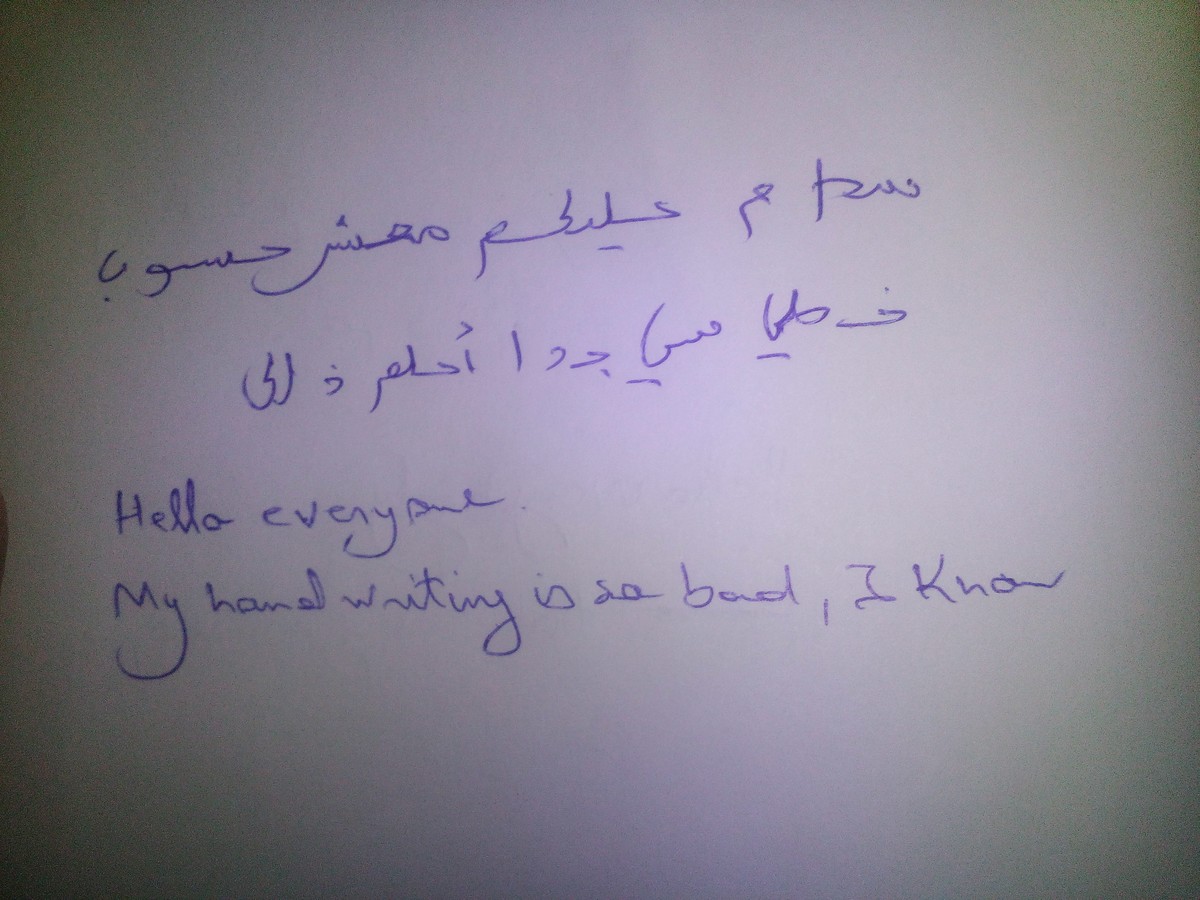 سلام عليكم معشر حسوب
خطي سيئ جدا أعلم ذلك
Hello everyone.
My hand writing is so bad, I know